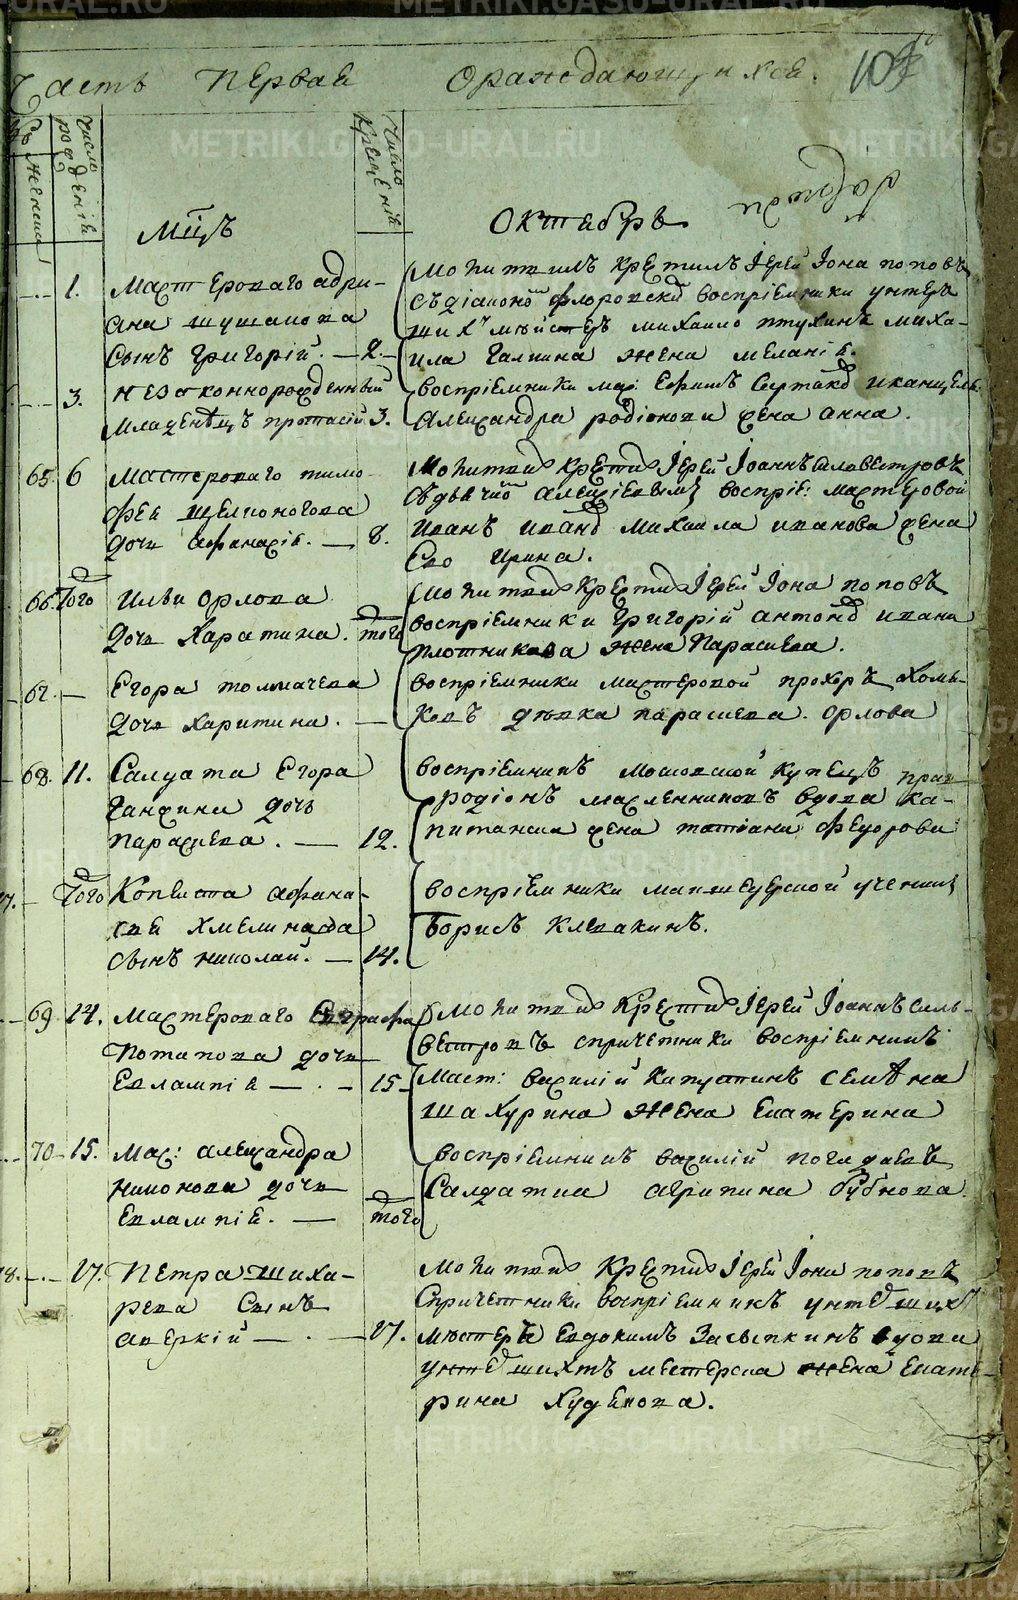 Часть Первая О раждающихся. 107
Женска
Число рожденія
Число крещенія
Мцъ Октябрь
1. Мастероваго адри-
яна шушакова
Сынъ Григорій. — 2 —
Молитвилъ крестилъ Іерей Іона поповъ
съ діакономъ флоровскимъ воспріемники унтеръ
шихтмейстеръ михаило птухинъ миха-
ила Галкина жена меланія.
3. незаконнорожденный
младенецъ протасій 3.
воспріемники мас: Ефимъ и канцеля
Александра родіонова жена анна.
65. 6 мастероваго тимо
фея щелконогова
дочь афанасія. — 8.
Молитвил крестил Іерей Іоаннъ Силвестровъ
съ дьячкомъ алексіевымъ воспріе: мастеровой
Иванъ ивано михаила иванова жена
Ево ирина.
66. Того Ильи орлова
дочь Харатина. того
Молитвил Крестил Іерей Іона поповъ
воспріемники григорій антоно ивана
плотникова жена Парасковья.
67. — Егора толмачева
дочь харитина. —
воспріемники мастеровой прохоръ
ковъ дѣвка параскева орлова
68. 11. Салдата Егора
Гандина дочь
параскева. — 12.
воспріемникъ московской купецъ
родіонъ масленниковъ вдова ка-
питанска жена татіана федорова
17. Того Копеиста афана-
сея Хмелинина
сынъ николай. — 14.
воспріемники ученикъ
Борисъ Клевакинъ.
69 14. Мастероваго Евграфа
Потапова дочь
Евлампія — . — 15 —
Молитвил Крестил Іерей Іоаннъ Силь-
вестровъ спричетники воспріемникъ
Маст: василій капустинъ семена
шахурина жена екатерина
70 15. Мас: александра
никонова дочь
Евлампія. — того
воспріемникъ василій погадаевъ
Салдатка агрипина бубнова
18. 17. Петра шиха-
рева сынъ
аверкій — . — 17.
Молитвил Крестил Іерей Іона поповъ
Спричетники воспріемникъ унтер шихт
мейстеръ Евдокимъ Засыпкинъ вдова
унтер шихтъ местерска жена екате-
рина худекова.
METRIKI.GASO-URAL.RU